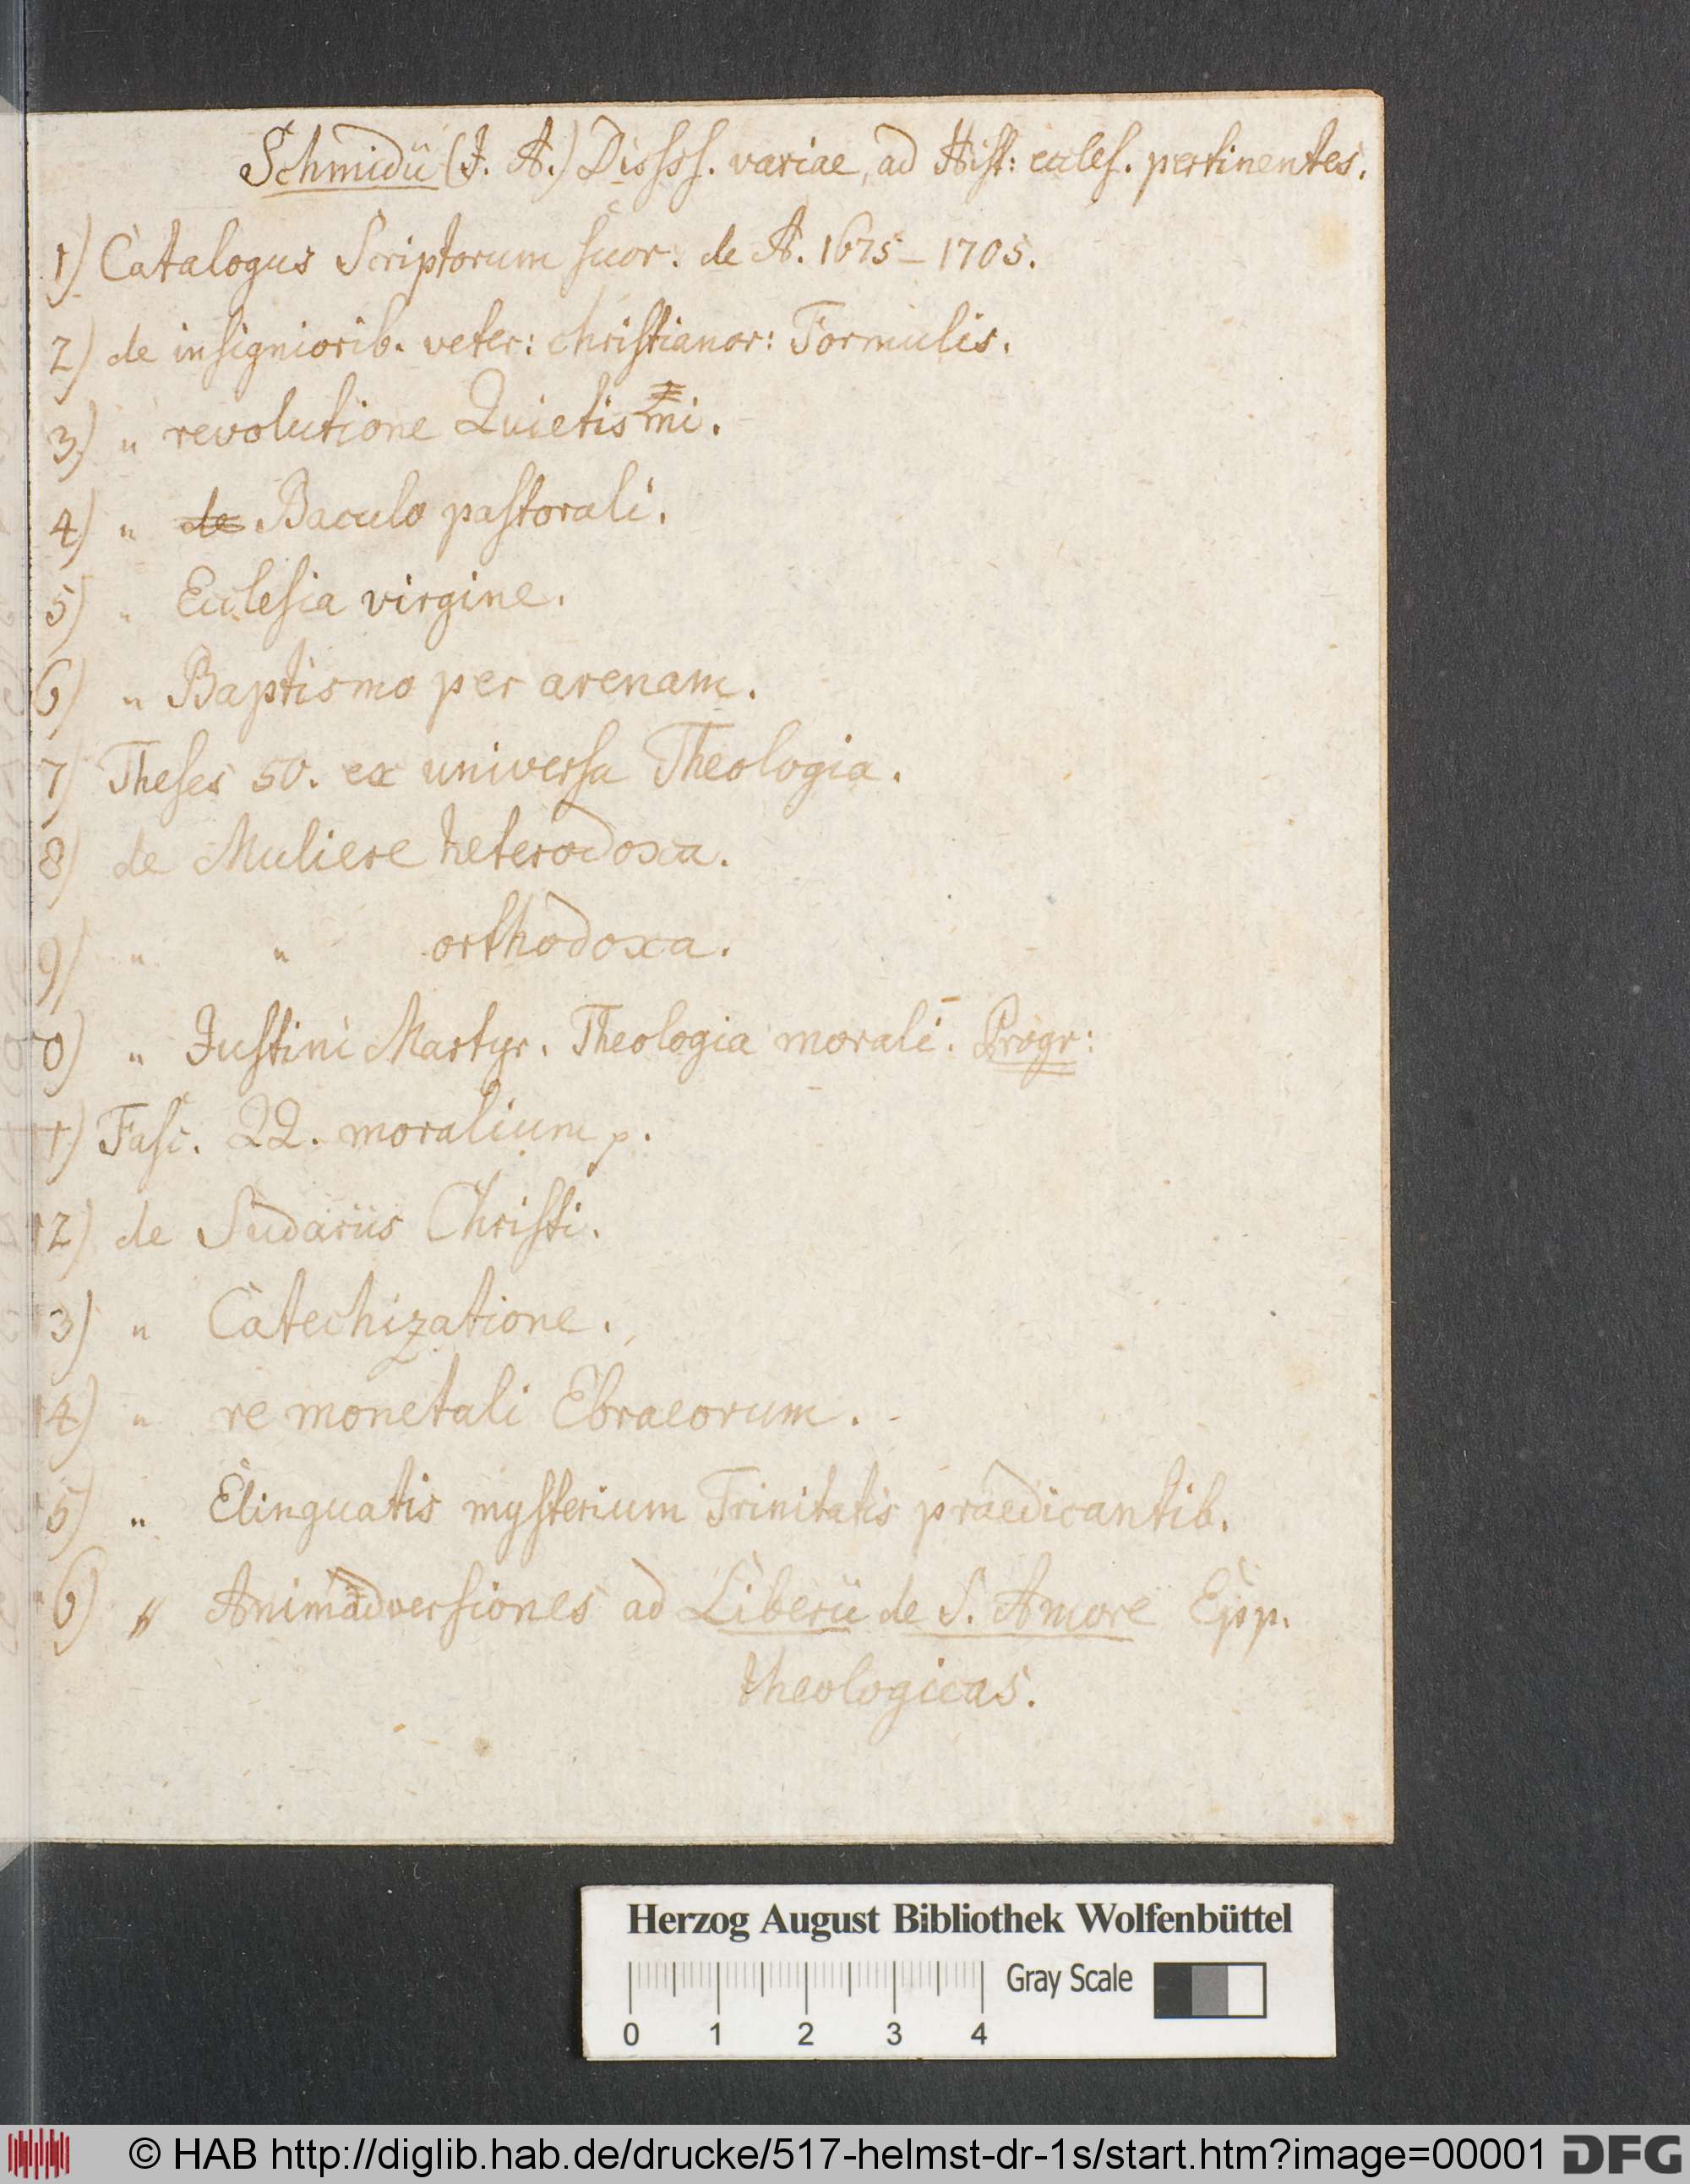 Schmidii (J. A.) Disſsſ. variae, ad Hiſt: eccleſ. pertinentes.
1) Catalogus Scriptorum ſuor. de A. 1675 – 1705.
2) de inſigniorib. veter: chriſtianor: Formulis.
3) " revolutione Quietismi.
4) " de Baculo paſtorali.
5) " Eccleſia virgine.
6) " Baptismo per arenam.
7) Theſes 50. ex univerſa Theologia.
8) de Muliere heterodoxa.
9) " " orthodoxa.
0) " Juſtini Martyr. Theologia morali. Progr:
1) Faſc. QQ. moralium p.
12) de Sudariis Chriſti.
13) " Catechizatione.
14) " re monetali Ebraeorum.
15) " Elinguatis myſterium Trinitatis praedicantib.
6) " Animadverſiones ad Liberii de S. Amore Epp.
theologicas.
Herzog August Bibliothek Wolfenbüttel
Gray Scale
0 1 2 3 4
© HAB http://diglib.hab.de/drucke/517-helmst-dr-1s/start.htm?image=00001 DFG